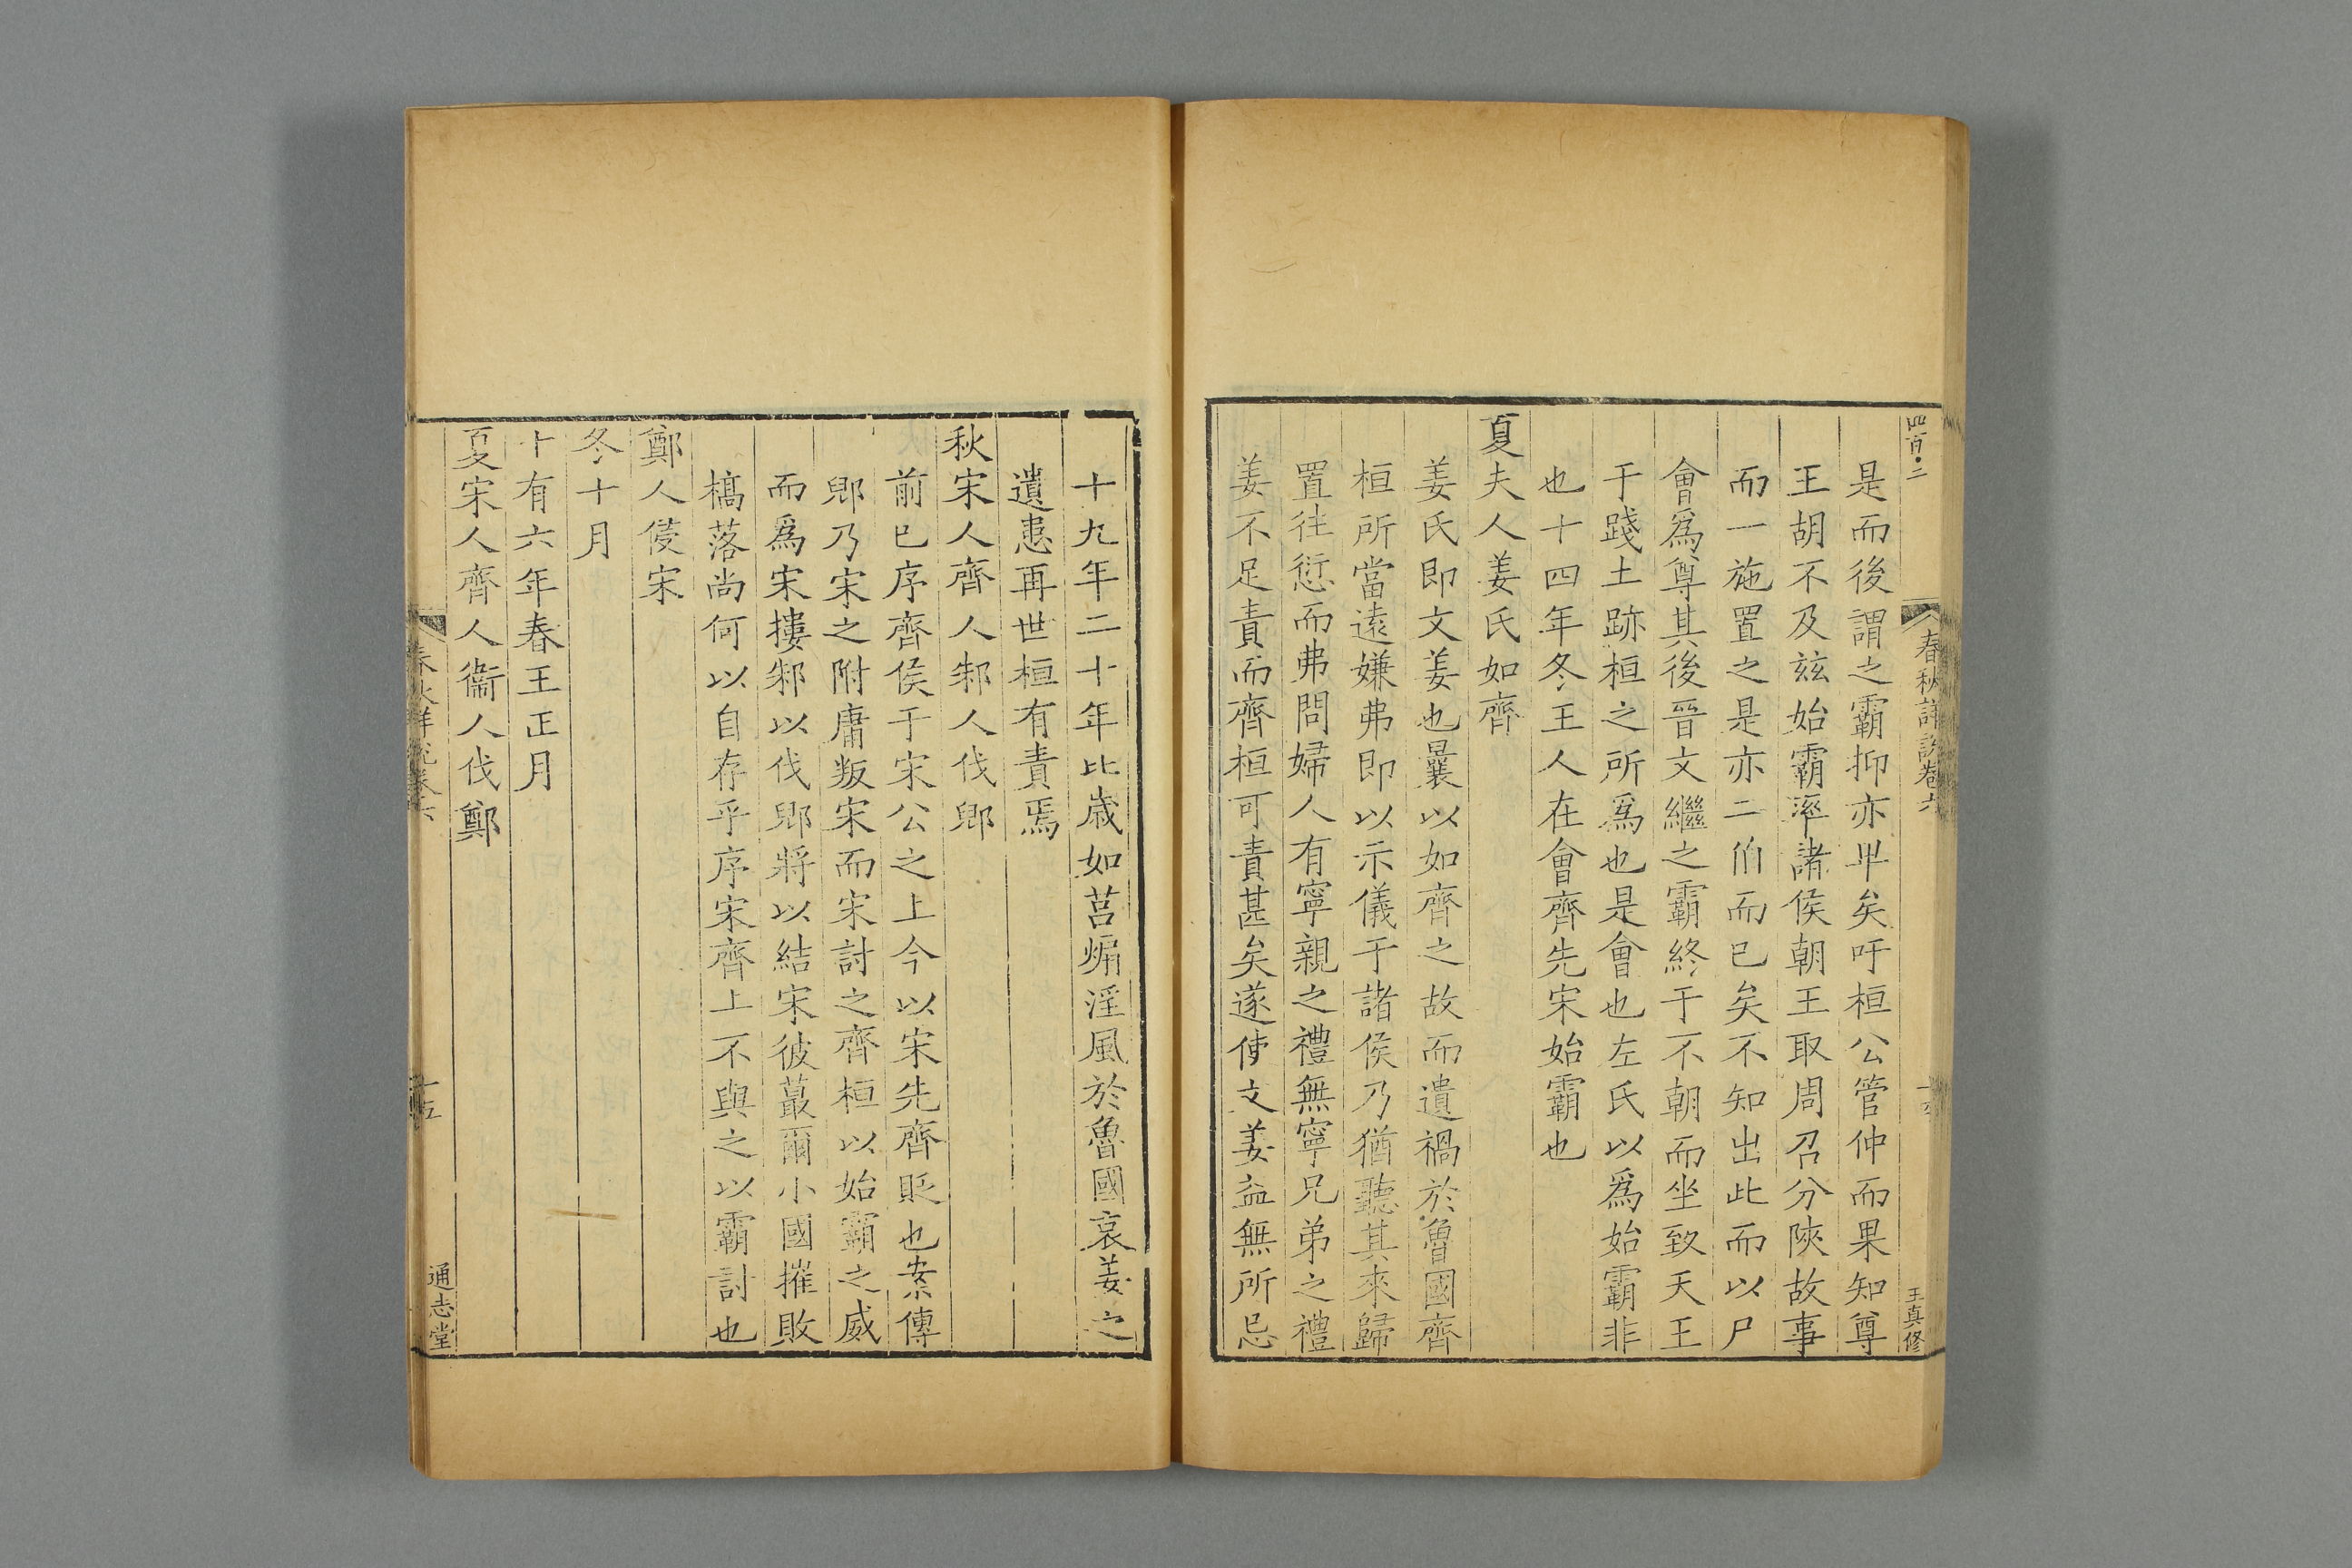 四百·二
春秋詳說卷六
王真修
是而後謂之霸抑亦卑矣吁桓公管仲而果知尊
王胡不及玆始霸率諸侯朝王取周召分陝故事
而一施置之是亦二伯而已矣不知出此而以尸
會爲尊其後晉文繼之霸終于不朝而坐致天王
于踐土跡桓之所爲也是會也左氏以爲始霸非
也十四年冬王人在會齊先宋始霸也
夏夫人姜氏如齊
姜氏即文姜也曩以如齊之故而遺禍於魯國齊
桓所當遠嫌弗即以示儀于諸侯乃猶聽其來歸
置往愆而弗問婦人有寧親之禮無寧兄弟之禮
姜不足責而齊桓可責甚矣遂使文姜益無所忌
十九年二十年比歲如莒煽淫風於魯國哀姜之
遺患再世桓有責焉
秋宋人齊人邾人伐郳
前已序齊侯于宋公之上今以宋先齊貶也案傳
郳乃宋之附庸叛宋而宋討之齊桓以始霸之威
而爲宋摟邾以伐郳將以結宋彼蕞爾小國摧敗
槁落尚何以自存乎序宋齊上不與之以霸討也
鄭人侵宋
冬十月
十有六年春王正月
夏宋人齊人衞人伐鄭
春秋詳說卷六
十五
通志堂